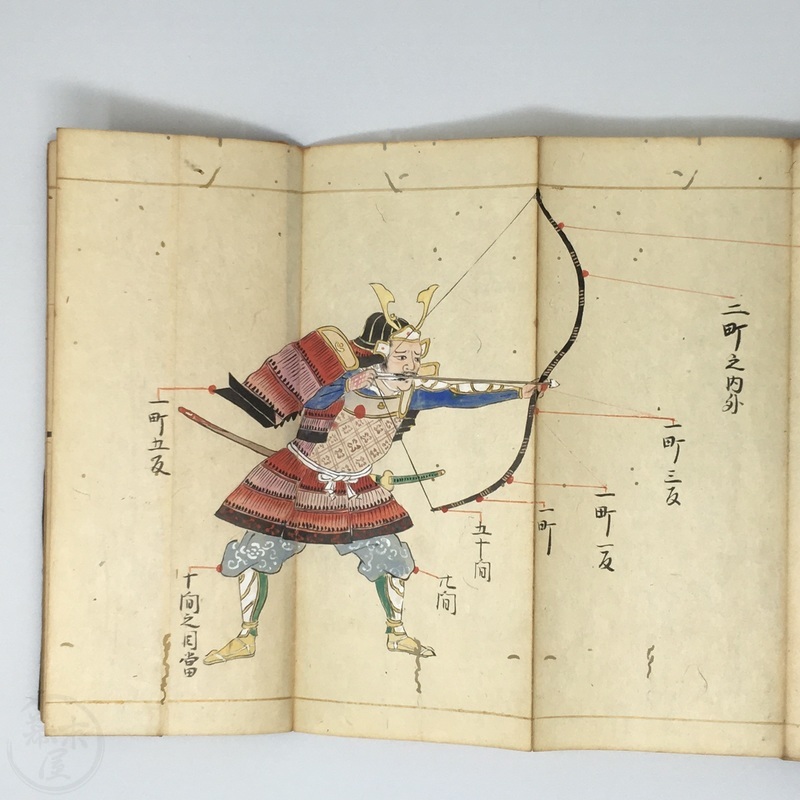 二町之内外
一町三反
一町一反
一町
五十間
十間之目當
一町五反
幕末屋